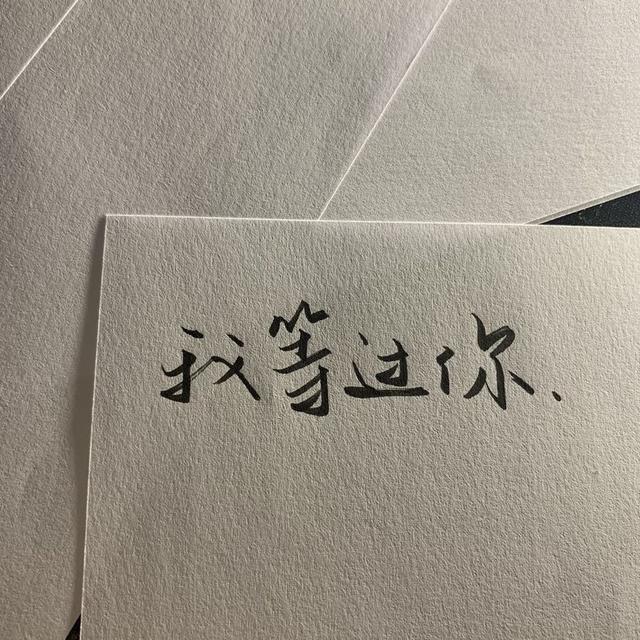 我等过你.